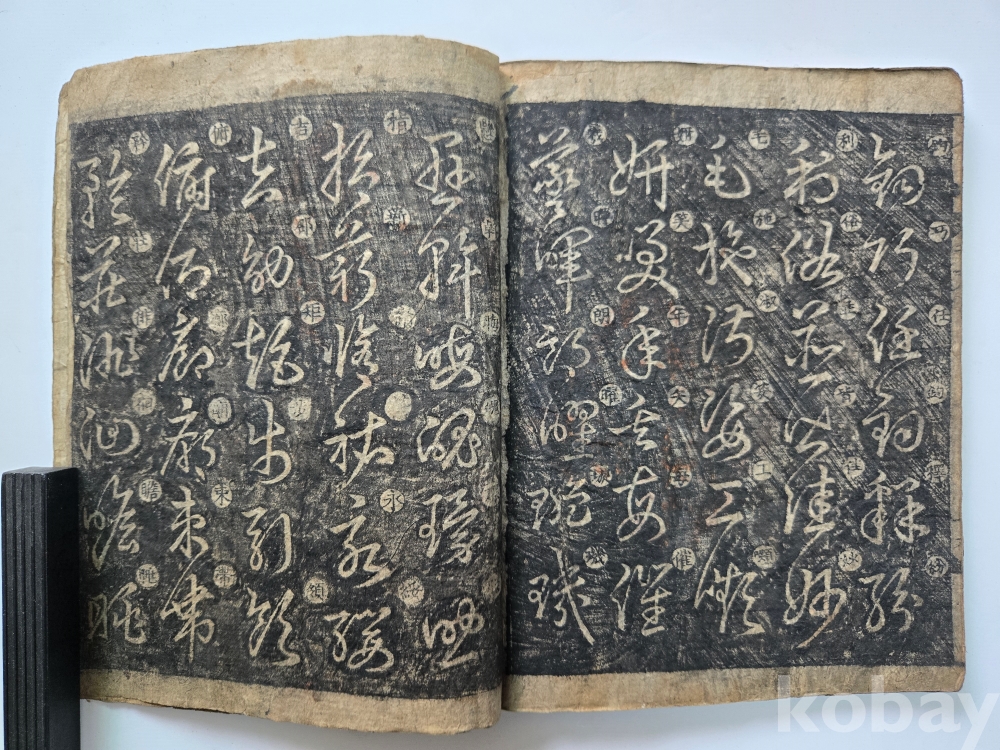 鈞巧任釣釋紛
利俗並皆佳妙
毛施淑姿工顰
妍笑年矢每催
羲暉朗曜璇璣
懸斡晦魄環照
指薪修祜永綏
吉劭矩步引領
俯仰廊廟束帶
矜莊徘徊瞻眺
kobay